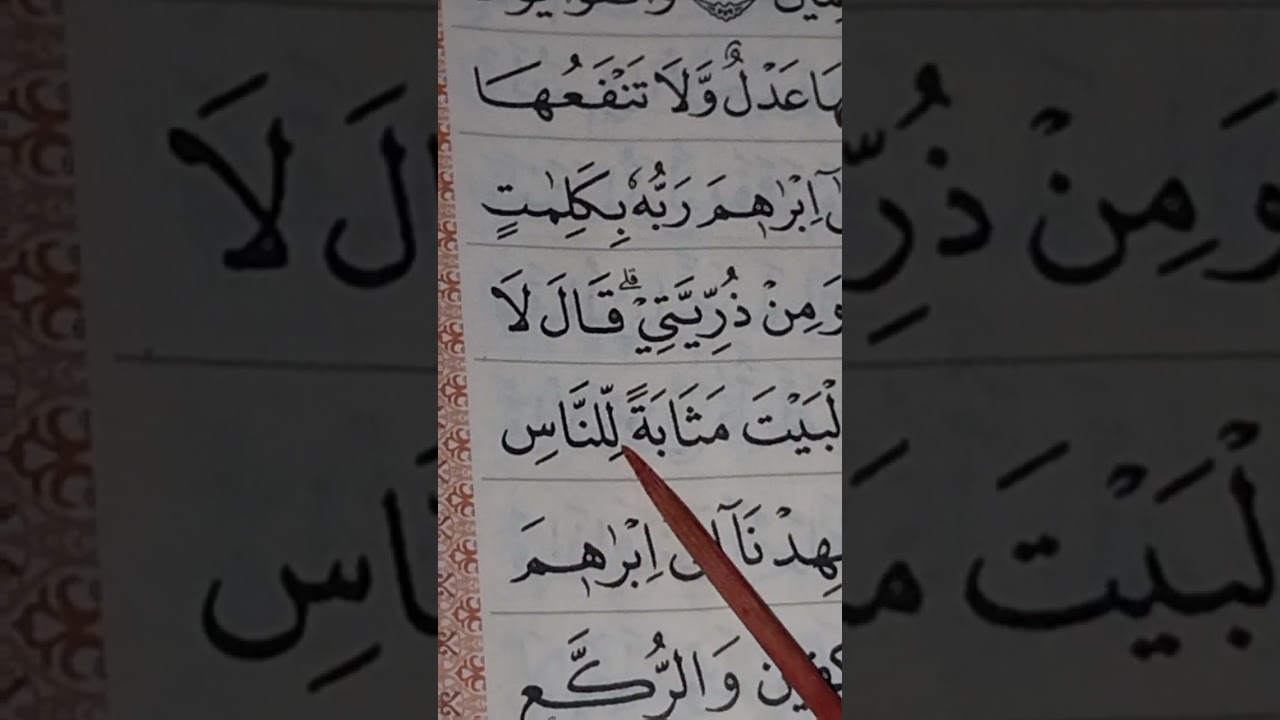 عَدْلٌ وَّلَا تَنْفَعُهَا
اِبْرٰهٖمَ رَبُّهٗ بِكَلِمٰتٍ
وَمِنْ ذُرِّيَّتِيْ ۗ قَالَ لَا
لْبَيْتَ مَثَابَةً لِّلنَّاسِ
هِدْنَآ اِلٰٓى اِبْرٰهٖمَ
وَالرُّكَّعِ